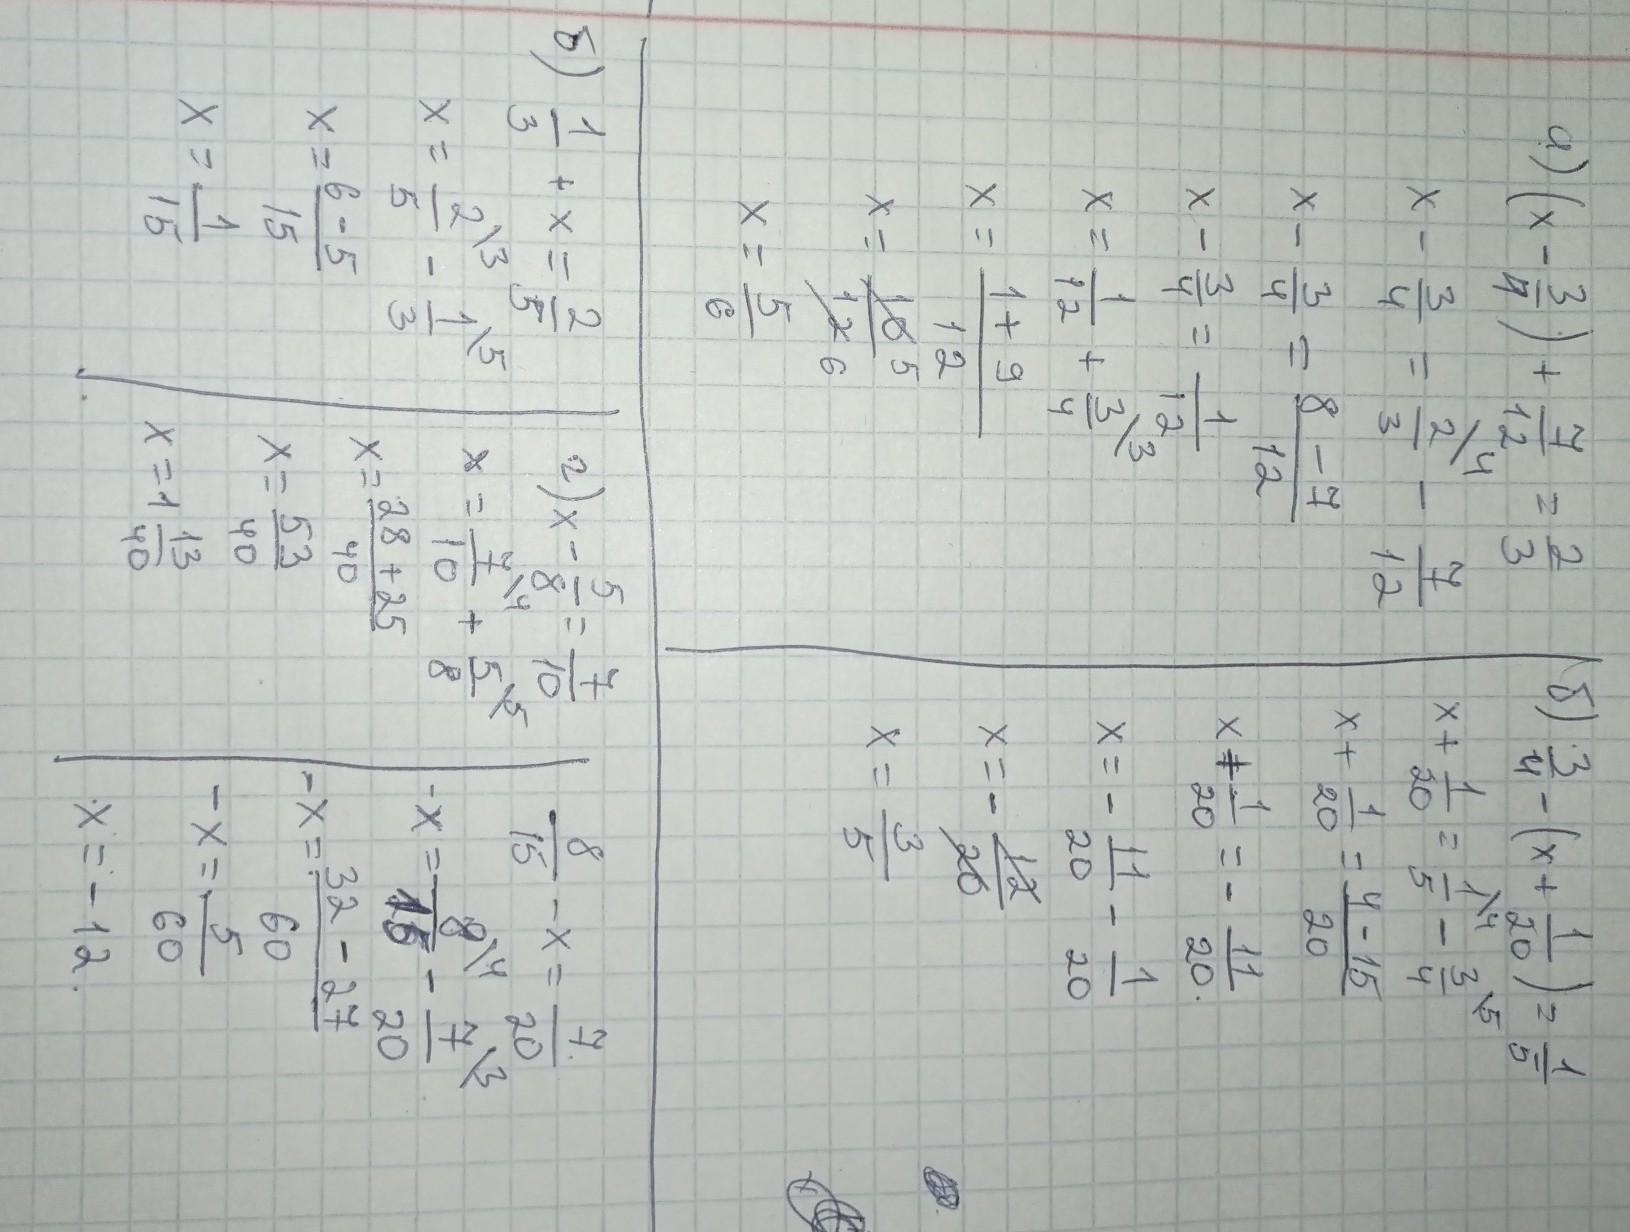 а) (x - 3/4) + 7/12 = 2/3
x - 3/4 = 2/3 \4 - 7/12
x - 3/4 = 8 - 7/12
x - 3/4 = 1/12
x = 1/12 + 3/4 \3
x = 1 + 9/12
x = 10 5/12 6
x = 5/6
б) 3/4 - (x + 1/20) = 1/5
x + 1/20 = 1/5 \4 - 3/4 \5
x + 1/20 = 4 - 15/20
x + 1/20 = - 11/20.
x = - 11/20 - 1/20
x = - 12/20
x = 3/5
б) 1/3 + x = 2/5
x = 2/5 \3 - 1/3 \5
x = 6 - 5/15
x = 1/15
г) x - 5/8 = 7/10
x = 7/10 \4 + 5/8 \5
x = 28 + 25/40
x = 53/40
x = 1 13/40
8/15 - x = 7/20
-x = 8/15 \4 - 7/20 \3
-x = 32 - 27/60
-x = 5/60
x = - 12.